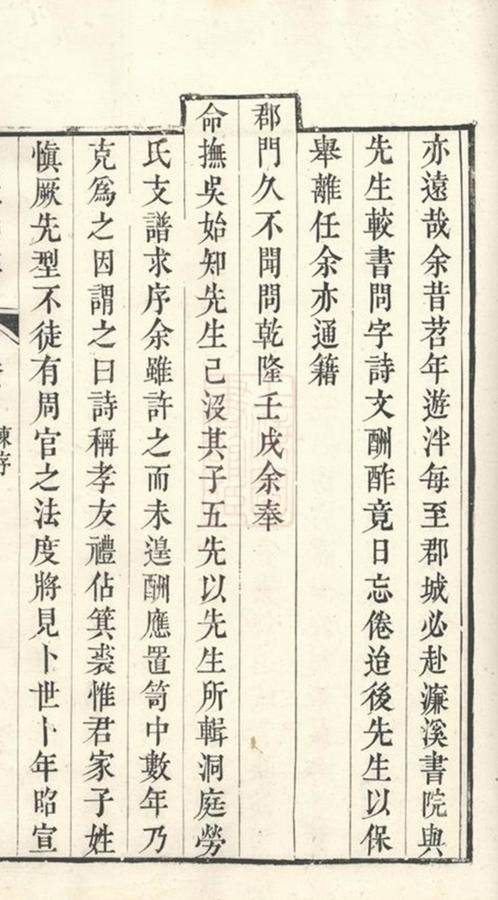 亦遠哉余昔苕年遊泮每至郡城必赴濂溪書院與
先生較書問字詩文酬酢竟日忘倦迨後先生以保
舉離任余亦通籍
郡門久不聞問乾隆壬戌余奉
命撫吳始知先生已沒其子五先以先生所輯洞庭勞
氏支譜求序余雖許之而未遑酬應置笥中數年乃
克爲之因謂之曰詩稱孝友禮佔箕裘惟君家子姓
愼厥先型不徒有周官之法度將見卜世卜年昭宣
陳序